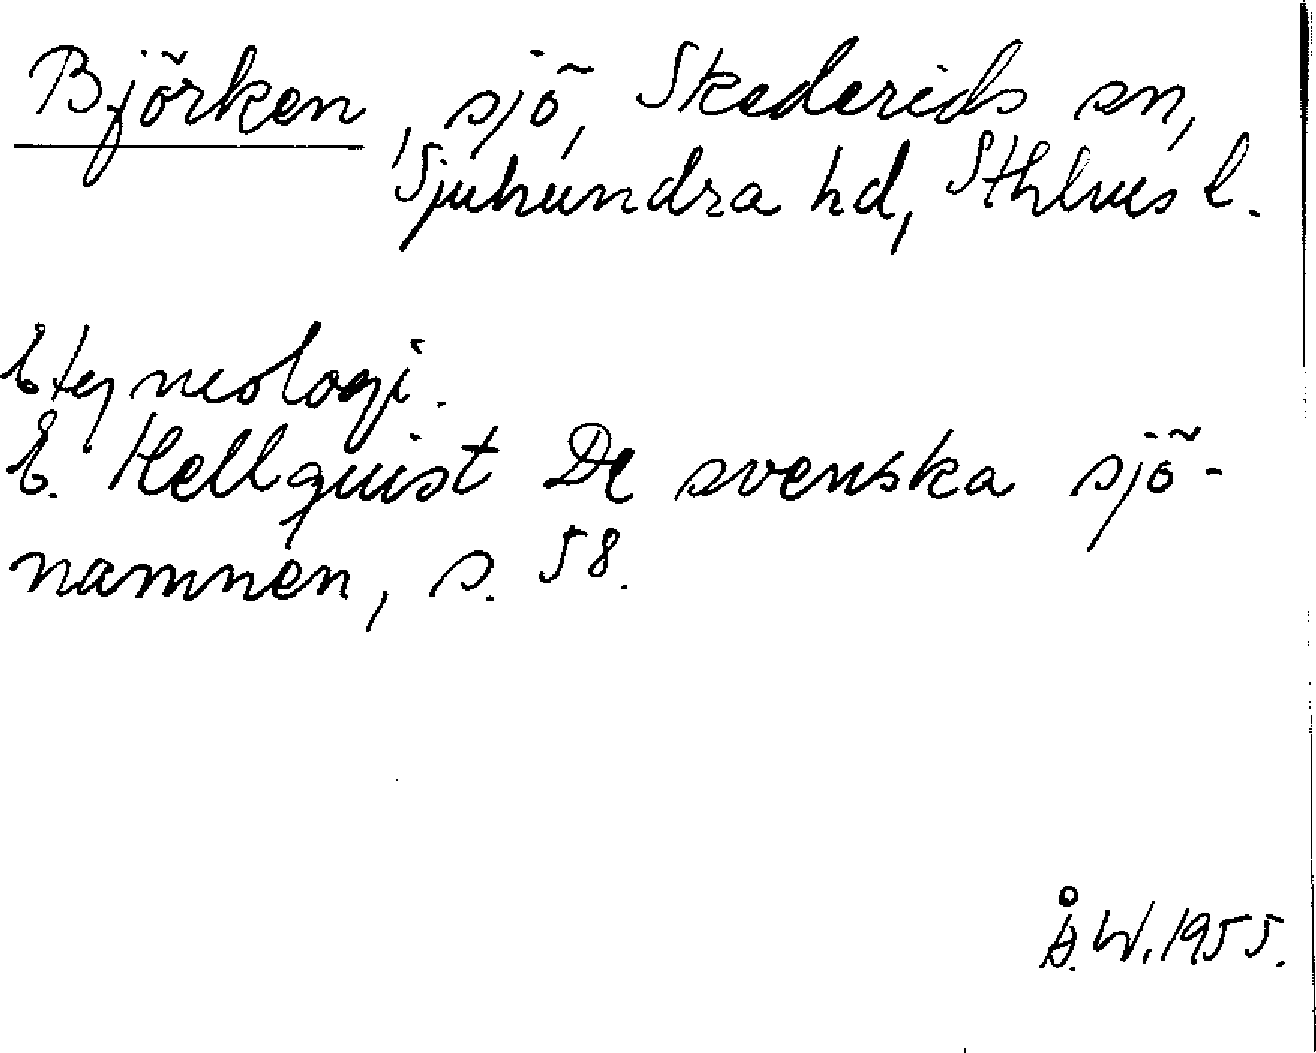 Björken, sjö, Skederids sn,
Sjuhundra hd, Sthlms l.
Etymologi.
E. Hellquist De svenska sjö-
namnen, s. 58.
Å.W. 1955.